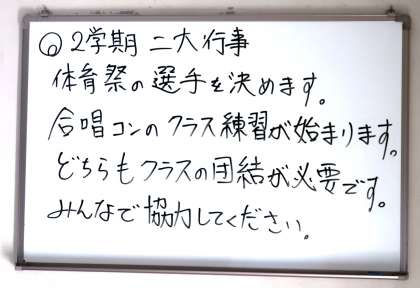 ◎ 2学期 二大行事
体育祭の選手を決めます。
合唱コンのクラス練習が始まります。
どちらもクラスの団結が必要です。
みんなで協力してください。